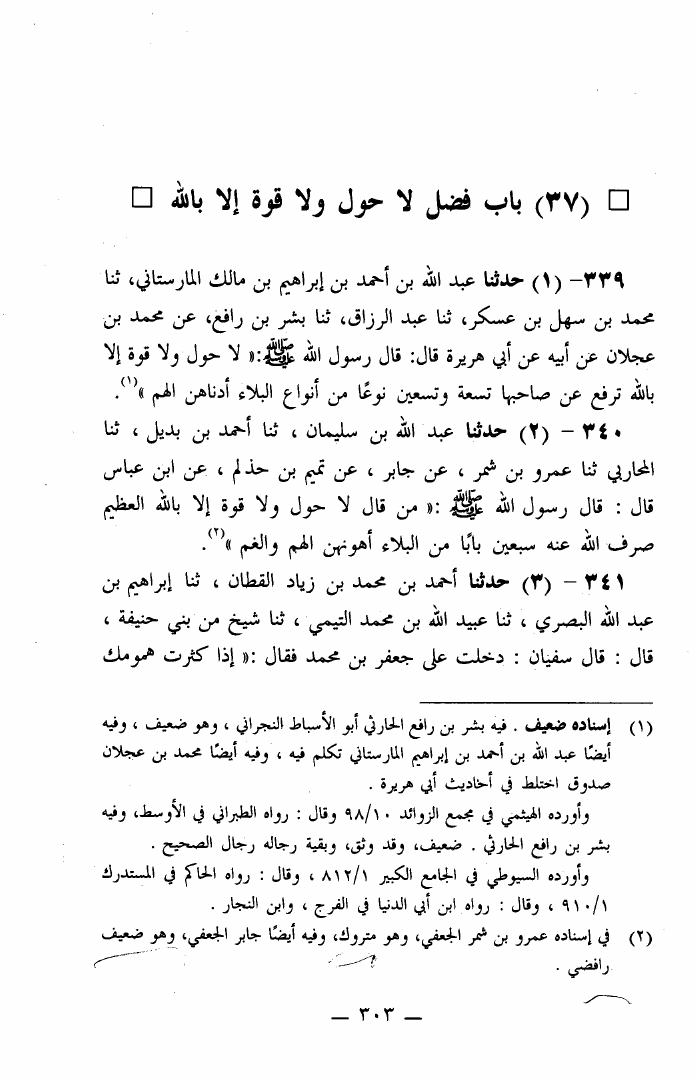 □ (٣٧) باب فضل لا حول ولا قوة إلا بالله □
٣٣٩- (١) حدثنا عبد الله بن أحمد بن إبراهيم بن مالك المارستاني، ثنا
محمد بن سهل بن عسكر، ثنا عبد الرزاق، ثنا بشر بن رافع، عن محمد بن
عجلان عن أبيه عن أبي هريرة قال: قال رسول الله ﷺ:« لا حول ولا قوة إلا
بالله ترفع عن صاحبها تسعة وتسعين نوعًا من أنواع البلاء أدناهن الهم »(١).
٣٤٠ - (٢) حدثنا عبد الله بن سليمان ، ثنا أحمد بن بديل ، ثنا
المحاربي ثنا عمرو بن شمر ، عن جابر ، عن تميم بن حذلم ، عن ابن عباس
قال : قال رسول الله ﷺ :« من قال لا حول ولا قوة إلا بالله العظيم
صرف الله عنه سبعين بابًا من البلاء أهونهن الهم والغم »(٢).
٣٤١ - (٣) حدثنا أحمد بن محمد بن زياد القطان ، ثنا إبراهيم بن
عبد الله البصري ، ثنا عبيد الله بن محمد التيمي ، ثنا شيخ من بني حنيفة ،
قال : قال سفيان : دخلت على جعفر بن محمد فقال :« إذا كثرت همومك
(١) إسناده ضعيف . فيه بشر بن رافع الحارثي أبو الأسباط النجراني ، وهو ضعيف ، وفيه
أيضًا عبد الله بن أحمد بن إبراهيم المارستاني تكلم فيه ، وفيه أيضًا محمد بن عجلان
صدوق اختلط في أحاديث أبي هريرة .
وأورده الهيثمي في مجمع الزوائد ٩٨/١٠ وقال : رواه الطبراني في الأوسط، وفيه
بشر بن رافع الحارثي . ضعيف، وقد وثق، وبقية رجاله رجال الصحيح .
وأورده السيوطي في الجامع الكبير ٨١٢/١ ، وقال : رواه الحاكم في المستدرك
٩١٠/١ ، وقال : رواه ابن أبي الدنيا في الفرج ، وابن النجار .
(٢) في إسناده عمرو بن شمر الجعفي، وهو متروك، وفيه أيضًا جابر الجعفي، وهو ضعيف
رافضي .
— ٣٠٣ —